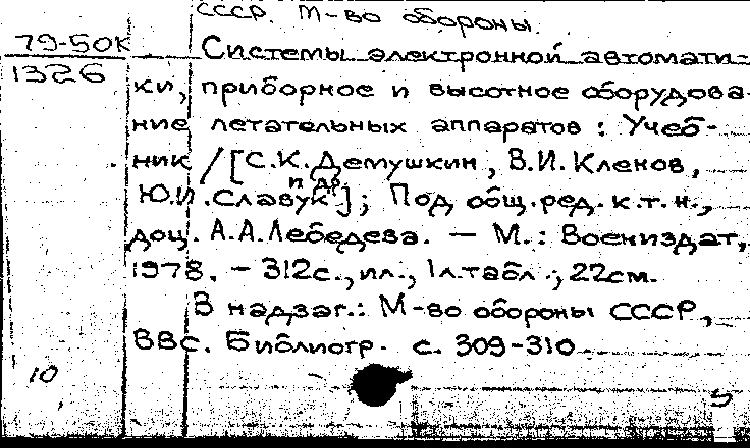 СССР. М-во обороны.
79-50К Системы электронной автомати-
1326 ки, приборное и высотное оборудова-
ние летательных аппаратов : Учеб-
ник / [С.К. Демушкин, В.И. Кленов,
Ю.И. Славук и др.] ; Под общ. ред. к.т.н.,
доц. А.А. Лебедева. — М. : Воениздат,
1978. – 312с., ил., 1л.табл., 22см.
В надзаг.: М-во обороны СССР,
ВВС. Библиогр. с. 309-310
10 5